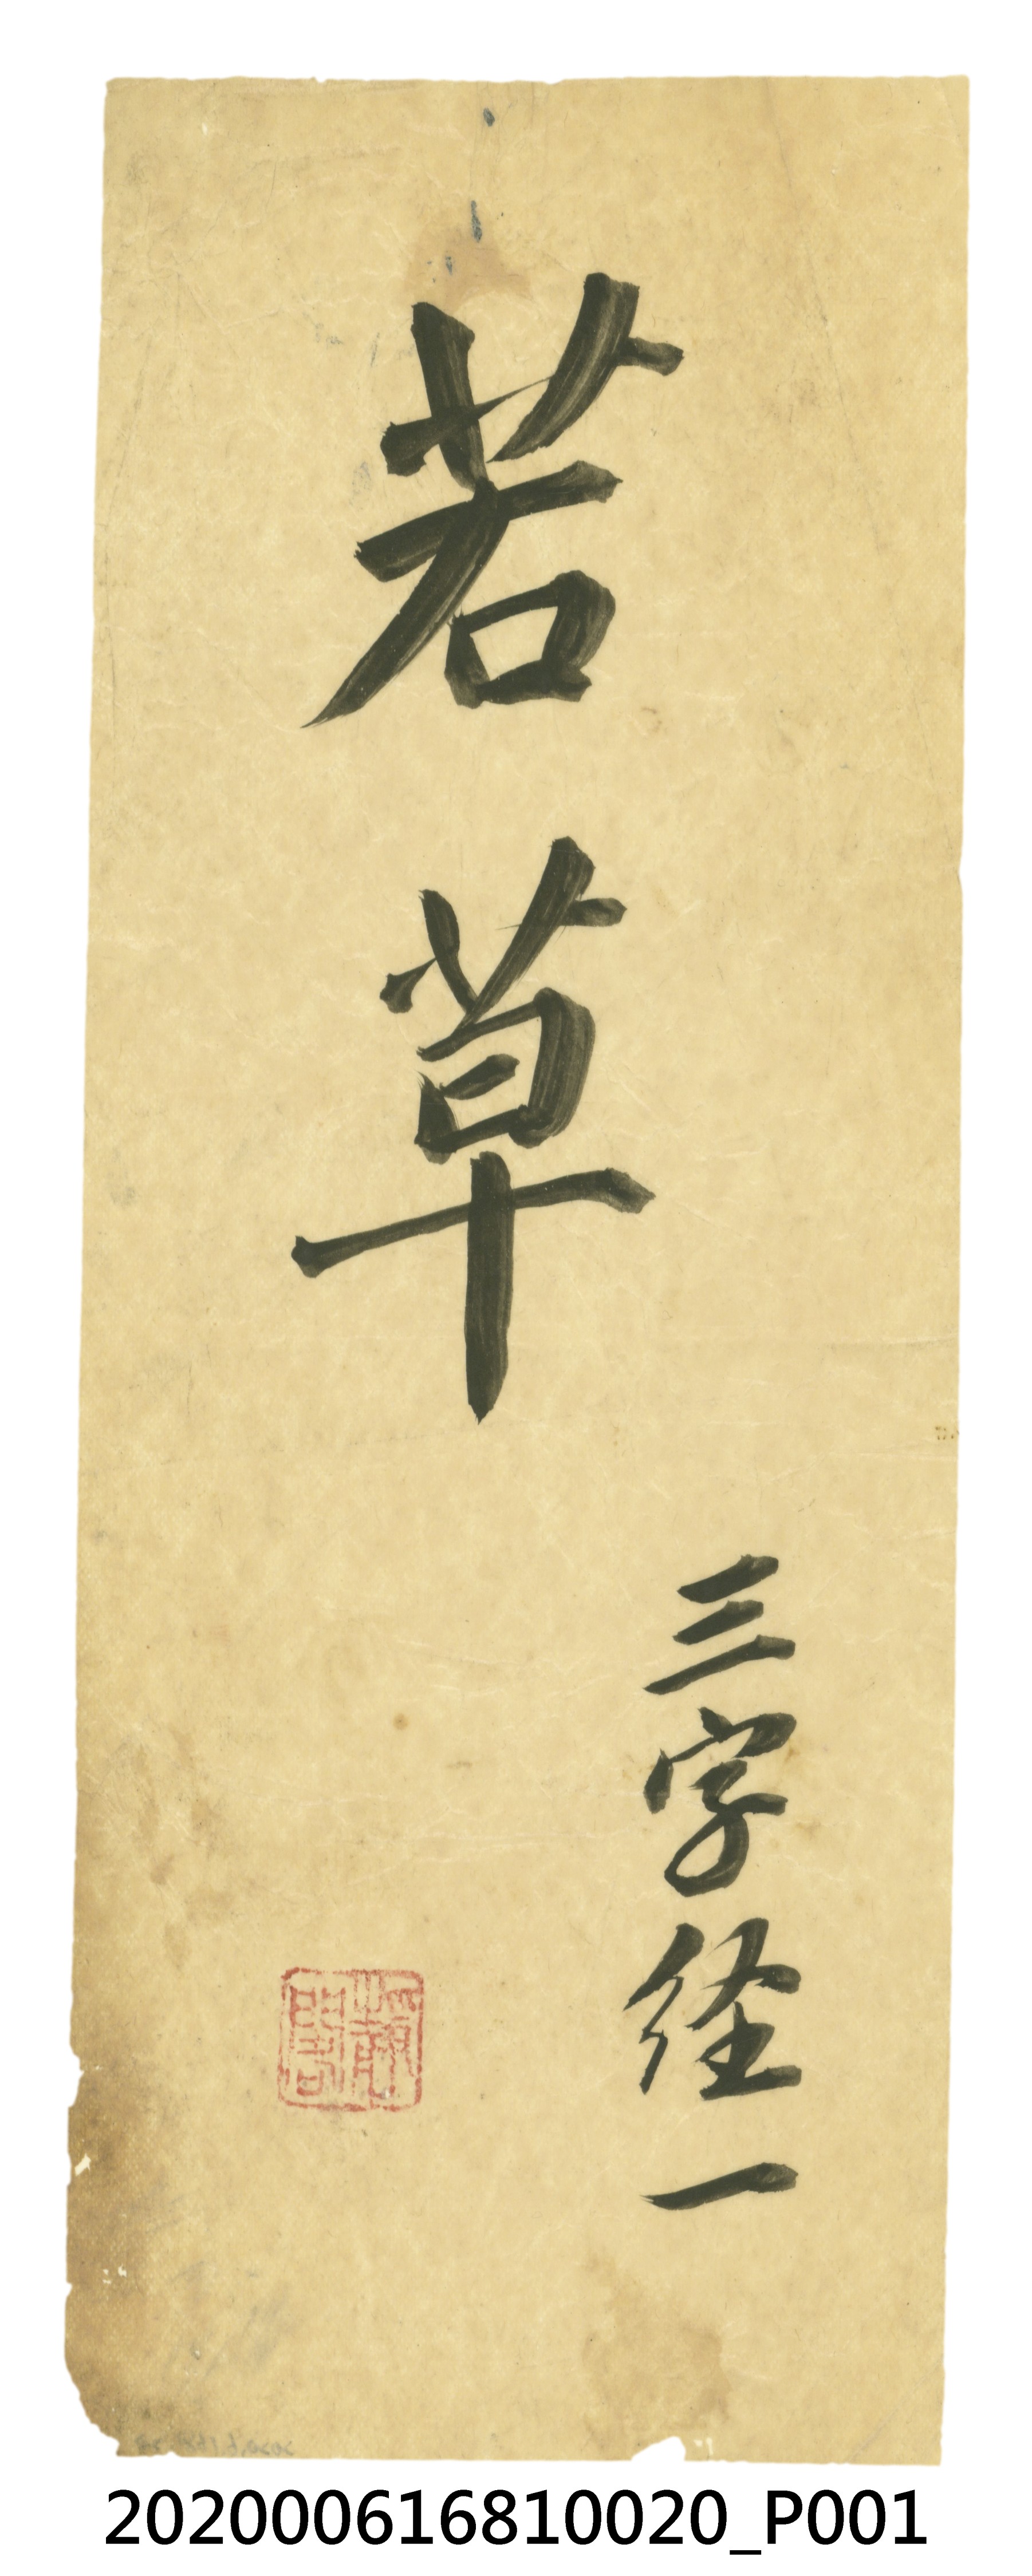 若草
三字経一
202000616810020_P001